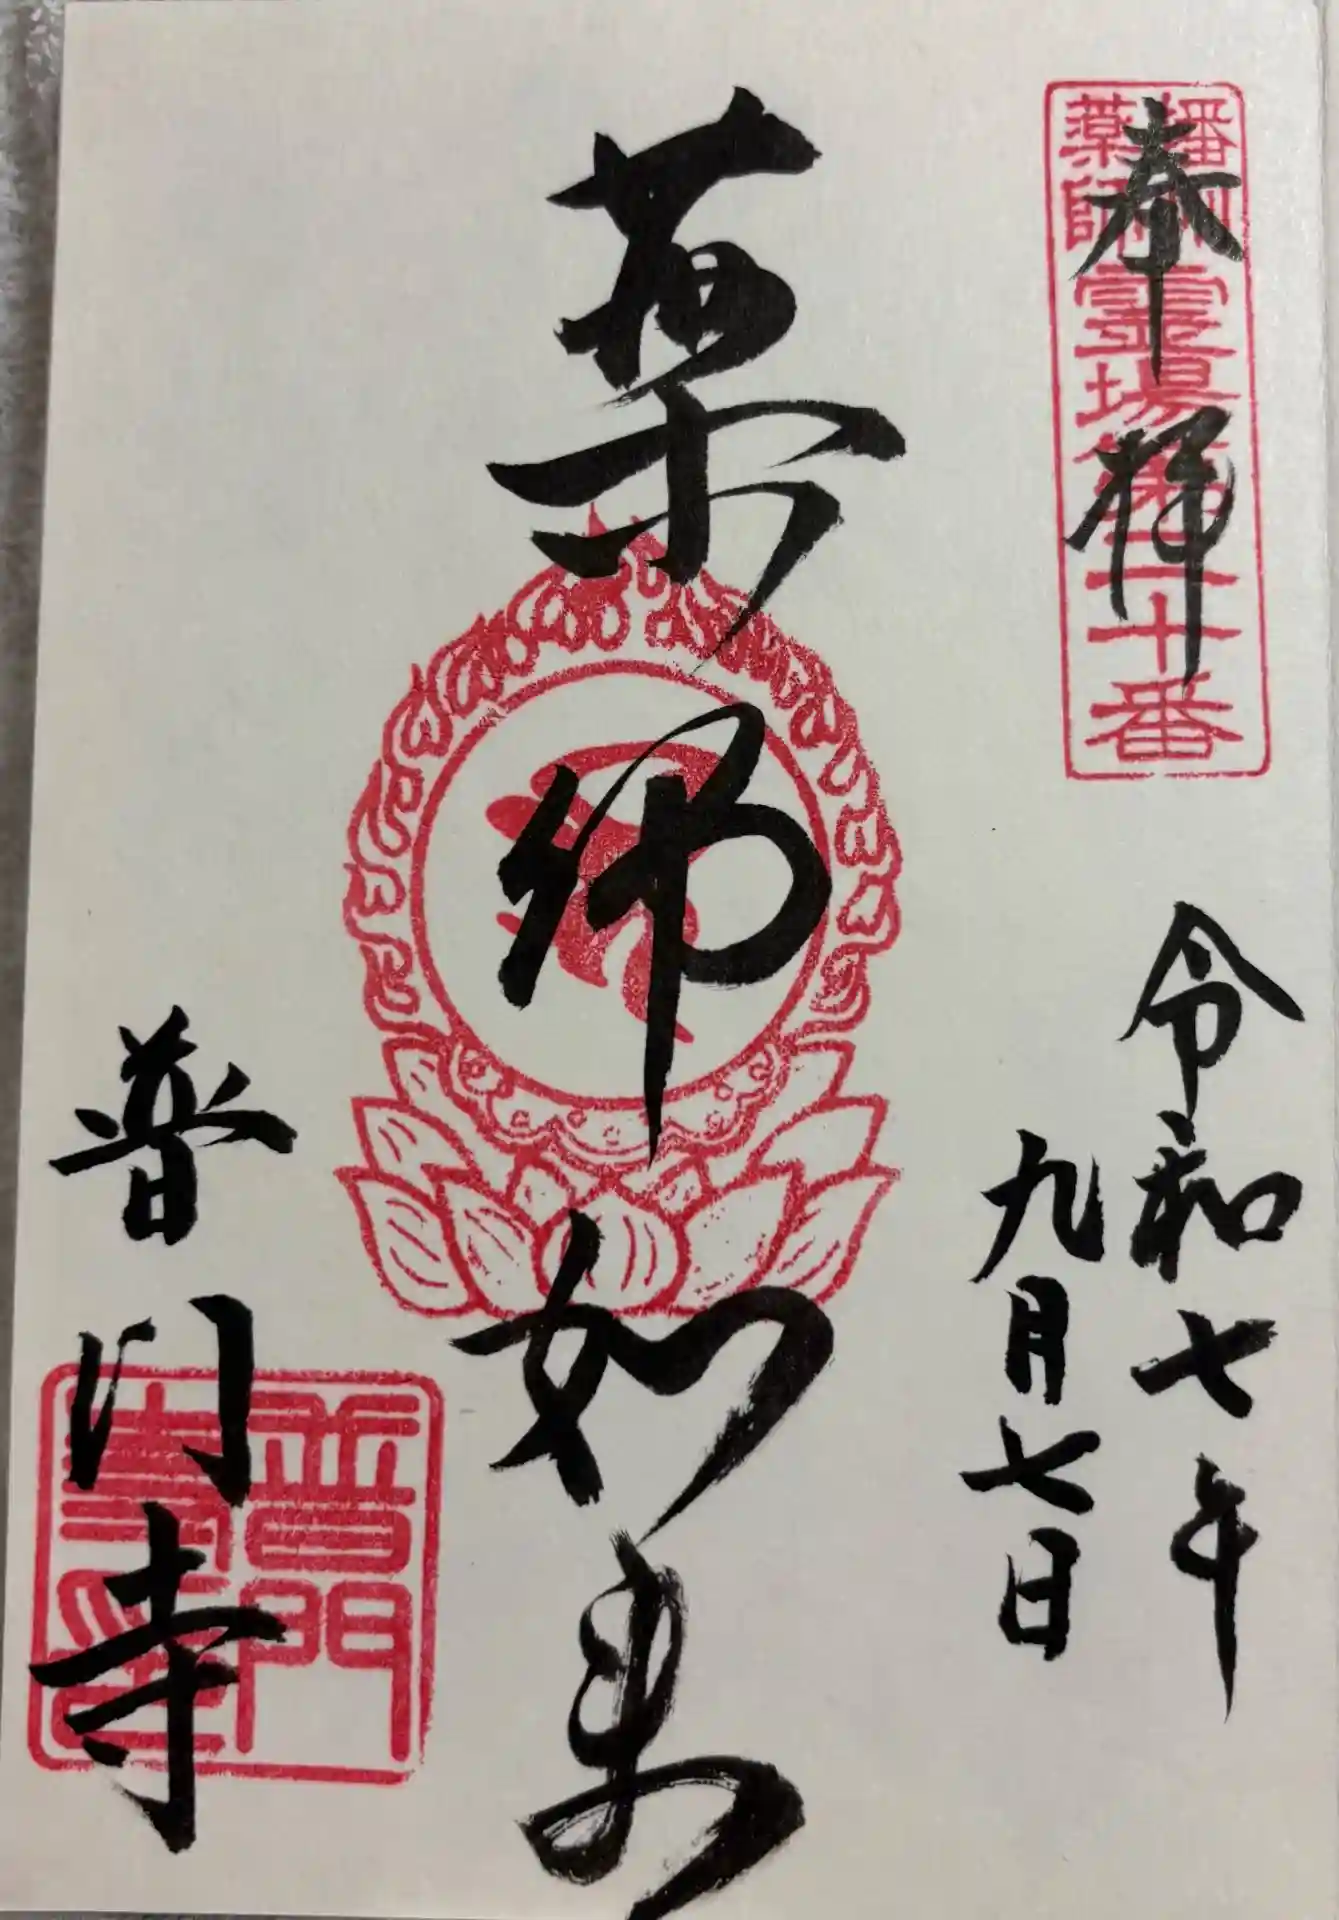 奉拝
播州薬師霊場第二十番
令和七年
九月七日
薬師如来
普門寺
普門寺印